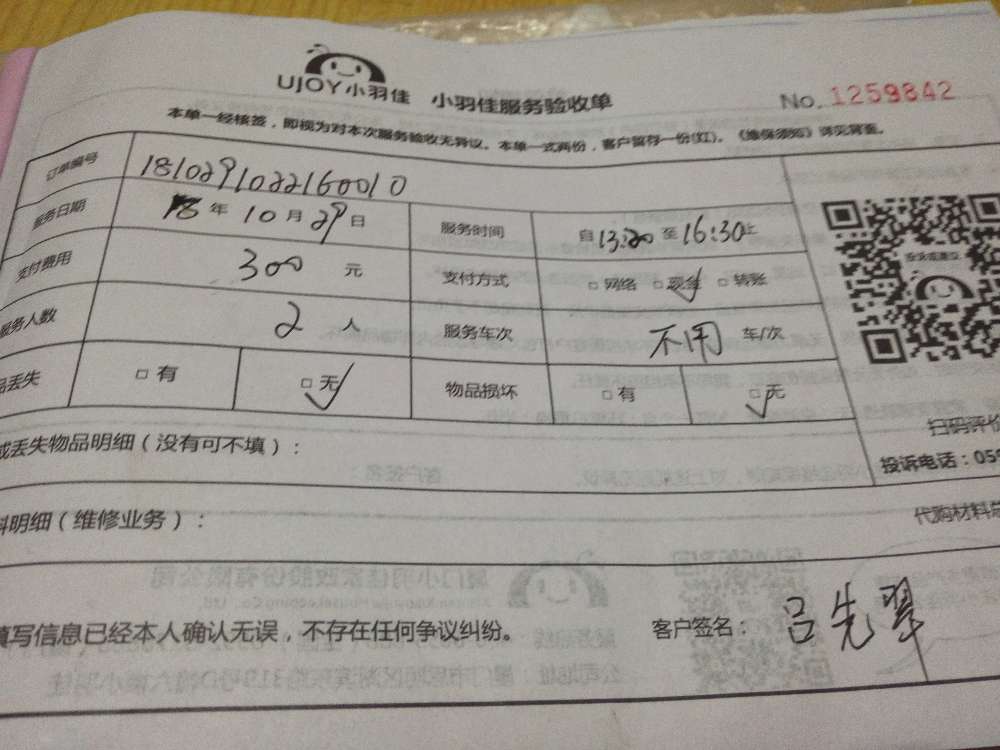 UJOY小羽佳 小羽佳服务验收单
No. 1259842
本单一经核签，即视为对本次服务验收无异议。本单一式两份，客户留存一份(红)。《维保须知》详见背面。
订单编号 1810291022160010
服务日期 18 年 10 月 29 日 服务时间 自 13:20 至 16:30 止
支付费用 300 元 支付方式 □ 网络 □ 现金 □ 转账
服务人数 2 人 服务车次 不用 车/次
品丢失 □ 有 □ 无 物品损坏 □ 有 □ 无
投诉或建议
扫码评价
或丢失物品明细（没有可不填）：
投诉电话：059
料明细（维修业务）：
代购材料总
填写信息已经本人确认无误，不存在任何争议纠纷。
客户签名：吕先翠